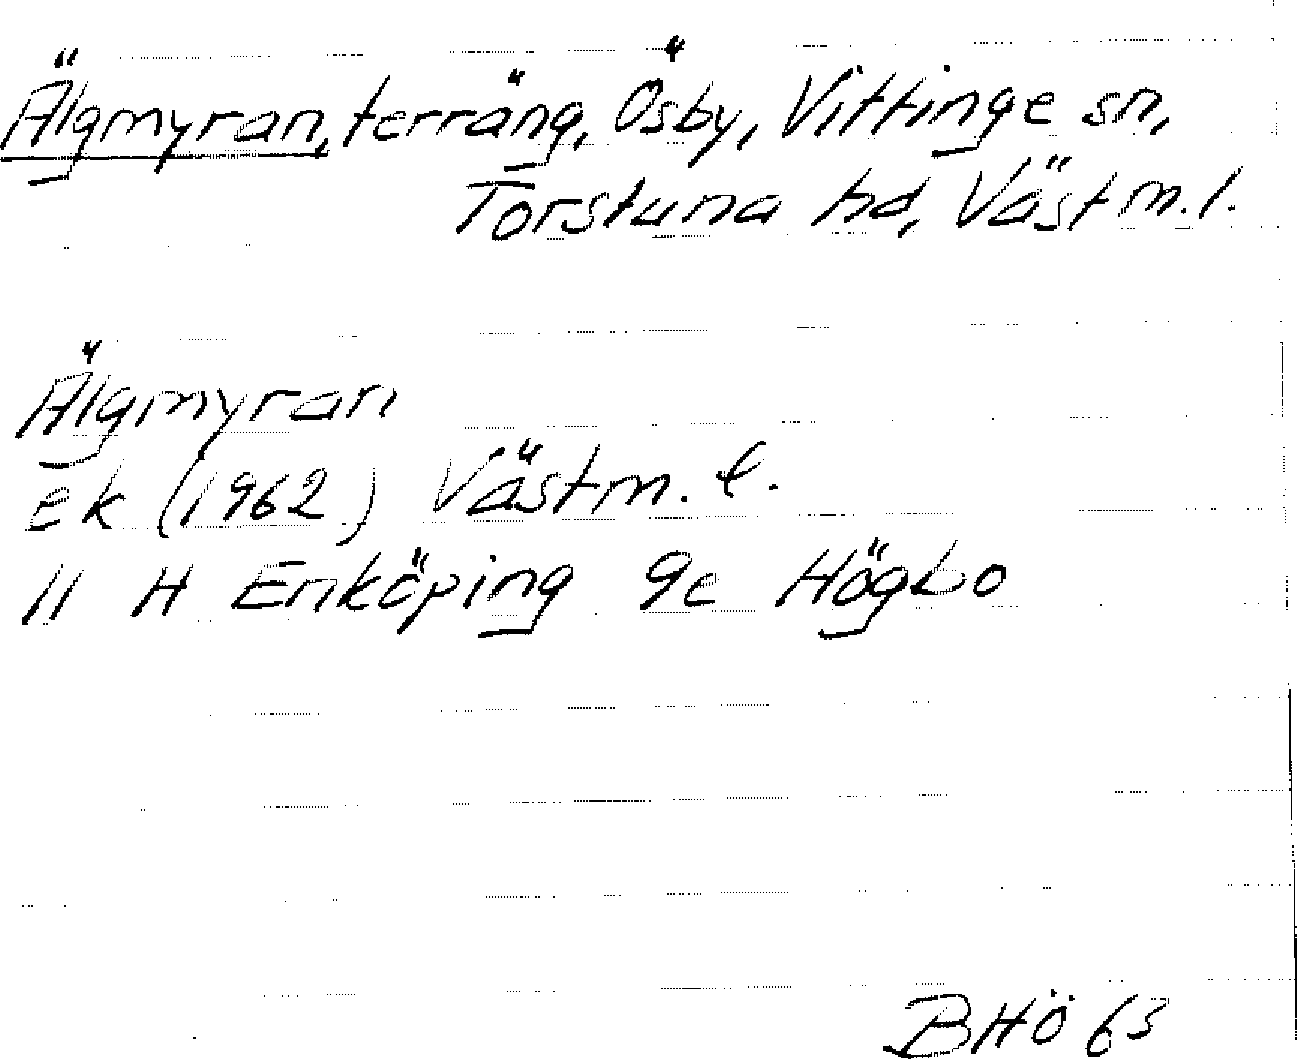 Älgmyran, terräng, Ösby, Vittinge sn,
Torstuna hd, Västm.l.
Älgmyran
Ek (1962) Västm. l.
11 H Enköping 9c Högbo
BHÖ 63